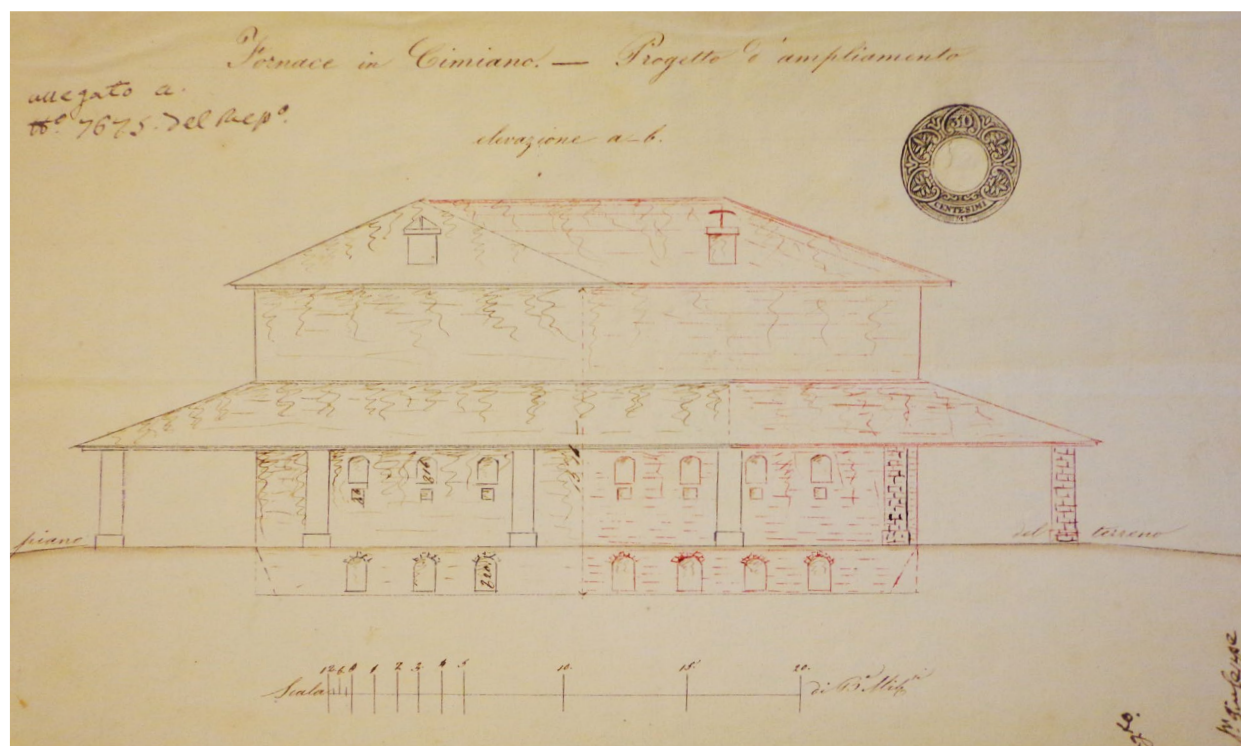 Fornace in Cimiano. — Progetto d'ampliamento
allegato a.
N.º 7675. del Rep.º
elevazione a-b.
30
CENTESIMI
piano
del terreno
Scala
12 6 0 1 2 3 4 5 10. 15. 20.
di B.ª Mil.si